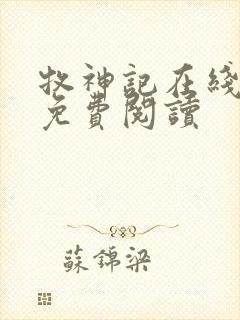 牧神記在綫
免費閱讀
蘇錦梁